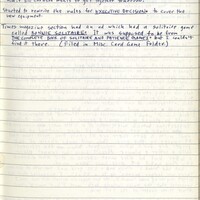 Started to rewrite the rules for EXECUTIVE DECISION to cover this
new equipment.
Times magazine section had an ad which had a Solitaire game
called BOWLING SOLITAIRE. It was supposed to be from
THE COMPLETE BOOK OF SOLITAIRE AND PATIENCE GAMES but I couldn't
find it there. (Filed in Misc Card Game Folder)